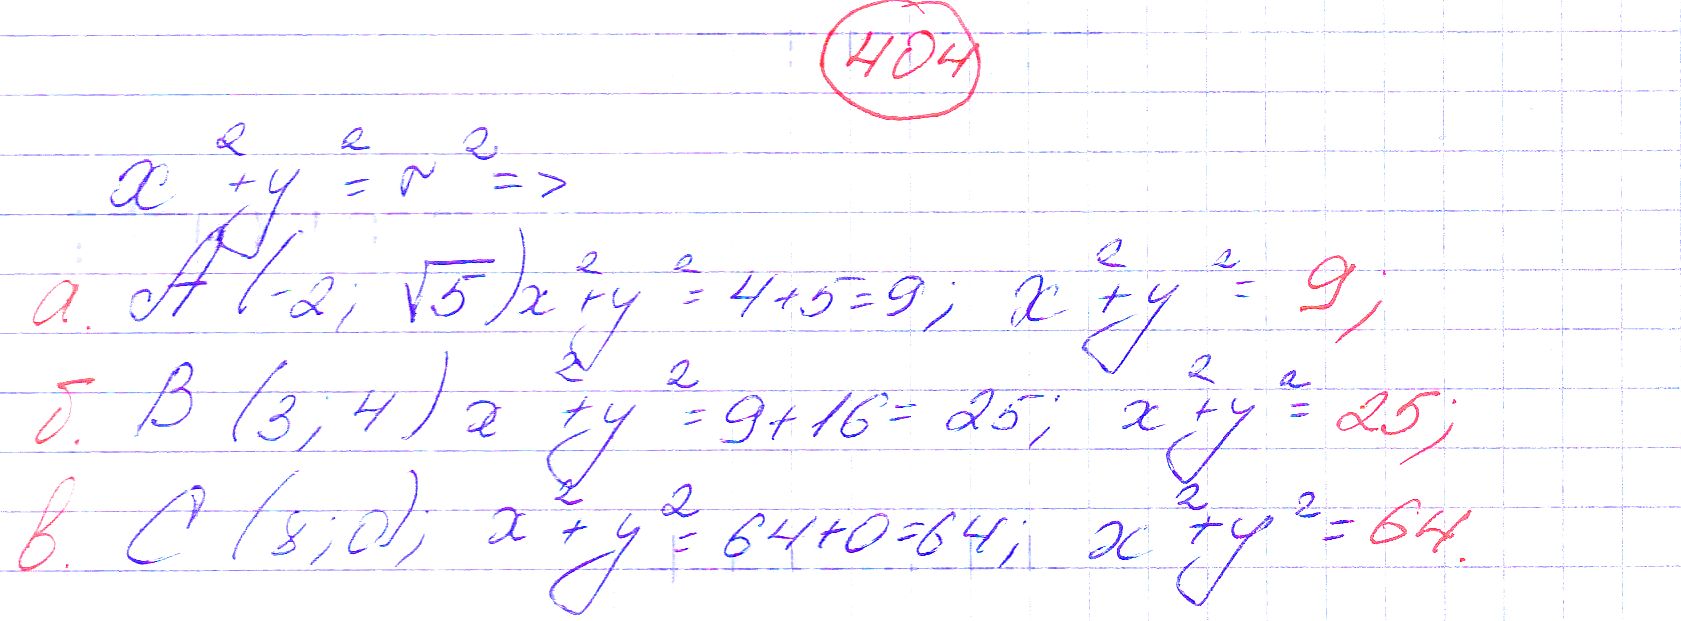 404
x² + y² = r² =>
а. A (-2; √5) x² + y² = 4+5=9; x² + y² = 9;
б. B (3; 4) x² + y² = 9+16=25; x² + y² = 25;
в. C (8; 0); x² + y² = 64+0=64; x² + y² = 64.